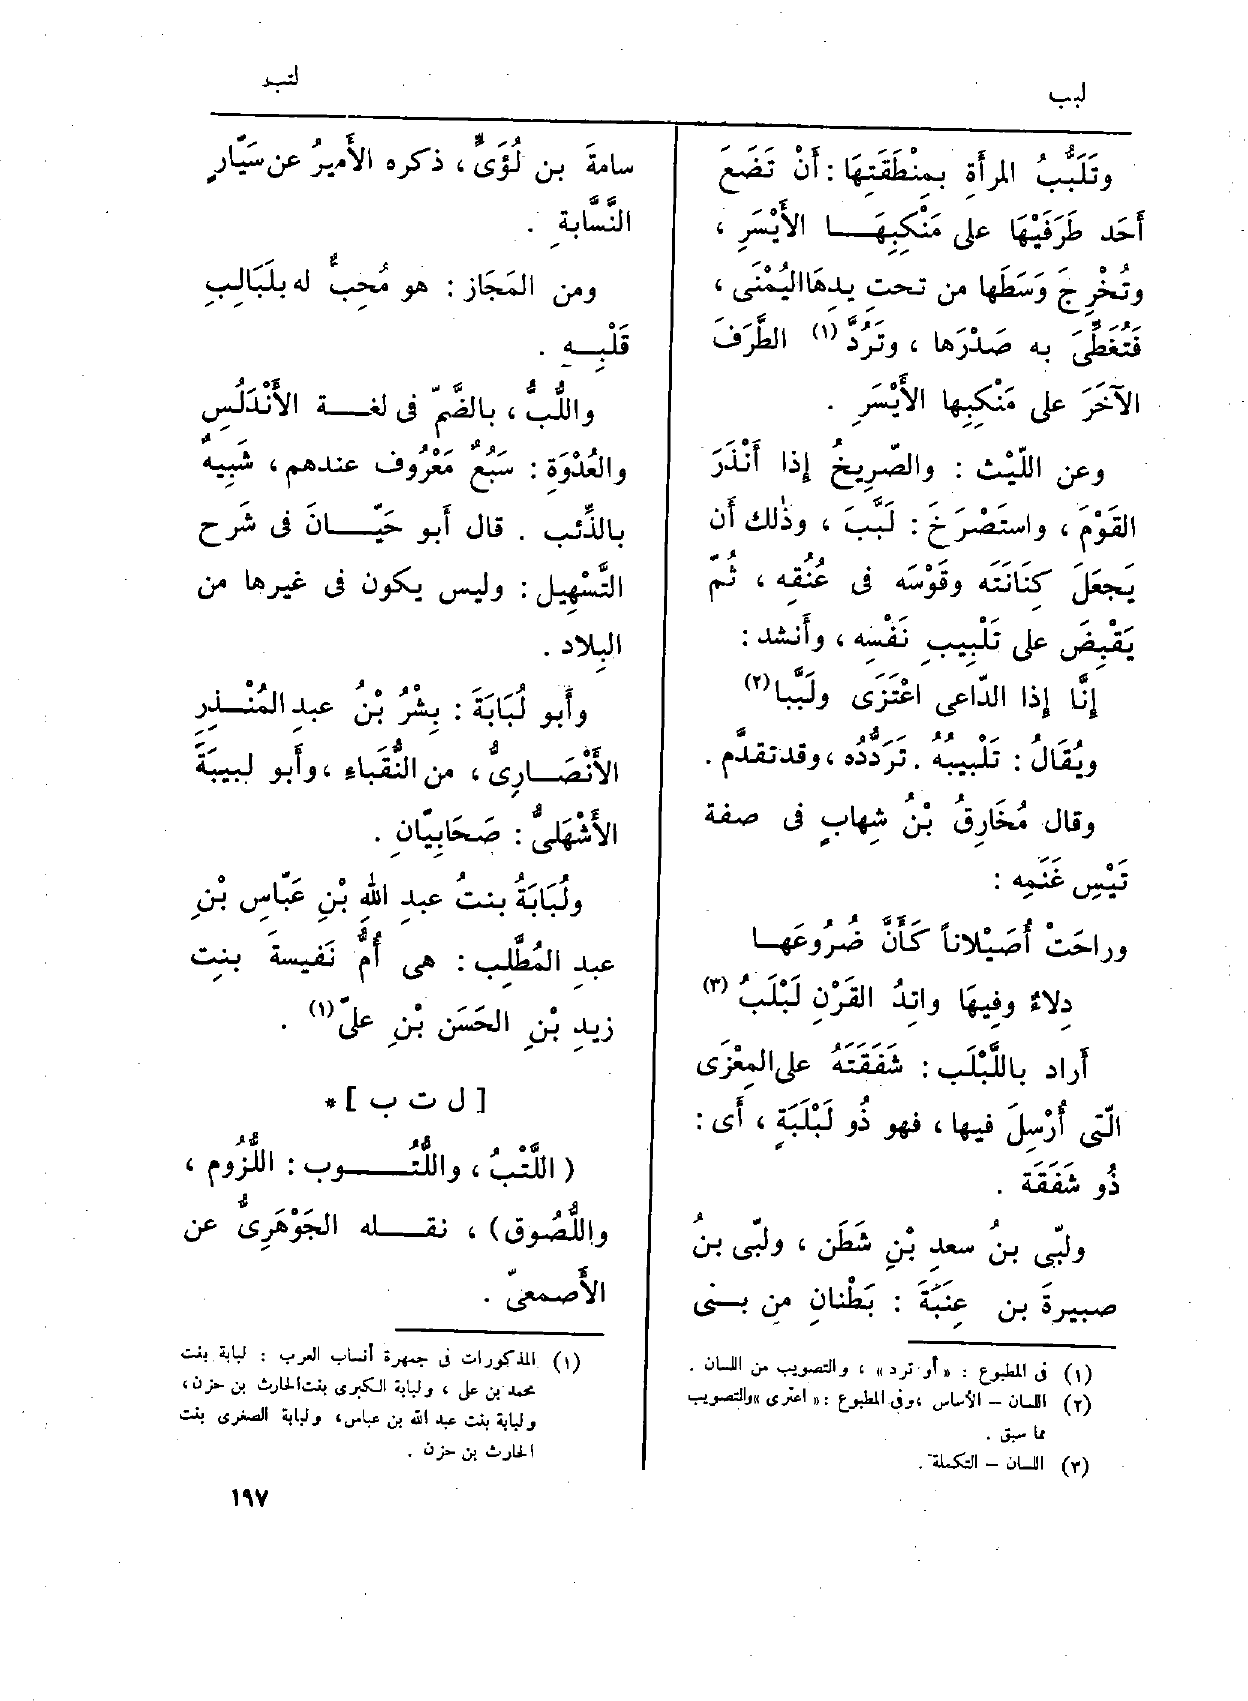 لبب
لتب
وتَلَبُّبُ المرأَةِ بِمِنْطَقَتِهَا: أَنْ تَضَعَ
أَحَد طَرَفَيْهَا على مَنْكِبِهَا الأَيْسَرِ ،
وتُخْرِجَ وَسَطَها من تحتِ يدِهَا اليُمْنَى ،
فَتُغَطِّىَ به صَدْرَها ، وتَرُدَّ (١) الطَّرَفَ
الآخَرَ على مَنْكِبِها الأَيْسَرِ .
وعن اللّيْث : والصَّرِيخُ إِذا أَنْذَرَ
القَوْمَ ، واستَصْرَخَ : لَبَّبَ ، وذٰلك أَن
يَجعَلَ كِنَانَتَه وقَوْسَه فى عُنُقِه ، ثُمّ
يَقْبِضَ على تَلْبِيبِ نَفْسِه ، وأَنشد :
إِنَّا إِذا الدّاعِى اعْتَزَى ولَبَّبا (٢)
ويُقَالُ : تَلْبِيبُهُ . تَرَدُّدُه ، وقد تقدَّم .
وقال مُخَارِقُ بْنُ شِهابٍ فى صفة
تَيْسِ غَنَمِه :
وراحَتْ أُصَيْلاناً كَأَنَّ ضُرُوعَهـا
دِلاءٌ وفِيهَا واتِدُ القَرْنِ لَبْلَبُ (٣)
أَراد بِاللَّبْلَب : شَفَقَتَهُ على المِعْزَى
الّتى أُرْسِلَ فيها ، فهو ذُو لَبْلَبَةٍ ، أَى :
ذُو شَفَقَة .
ولبّى بنُ سعدِ بْنِ شَطَن ، ولبّى بنُ
صبيرةَ بن عِنَبَةَ : بَطْنانِ مِن بـنى
(١) فى المطبوع : « أو ترد » ، والتصويب من اللسان .
(٢) اللسان – الأساس ، وفى المطبوع : « اعترى » والتصويب
مما سبق .
(٣) اللسان – التكملة .
سامةَ بن لُؤَىٌّ ، ذكره الأَميرُ عن سَيّارٍ
النَّسّابةِ .
ومن المَجَاز : هو مُحِبٌّ له بلَبَالِبِ
قَلْبِـهِ .
واللُّبُّ ، بالضَّمّ فى لغـة الأَنْدَلُسِ
والعُدْوَةِ : سَبُعٌ مَعْرُوف عندهم ، شَبِيهٌ
بالذِّئب . قال أَبو حَيّـانَ فى شَرح
التَّسْهِيل : وليس يكون فى غيرها من
البِلاد .
وأَبو لُبَابَةَ : بِشْرُ بْنُ عبدِ المُنْـذِرِ
الأَنْصَـارِىُّ ، من النُّقَباءِ ، وأَبو لبيبَةَ
الأَشْهَلىُّ : صَحَابِيّانِ .
ولُبَابَةُ بنتُ عبدِ اللهِ بْنِ عَبّاسِ بْنِ
عبدِ المُطَّلِب : هى أُمُّ نَفيسةَ بنتِ
زيدِ بْنِ الحَسَن بْنِ علىّ (١) .
[ ل ت ب ] *
( اللَّتْبُ ، واللُّتُـوب : اللُّزُوم ،
واللُّصُوق ) ، نقـله الجَوْهَرِىُّ عن
الأَصمعىّ .
(١) المذكورات فى جمهرة أنساب العرب : لبابة بنت
محمد بن على ، ولبابة الكبرى بنت الحارث بن حزن ،
ولبابة بنت عبد الله بن عباس ، ولبابة الصغرى بنت
الحارث بن حزن .
١٩٧